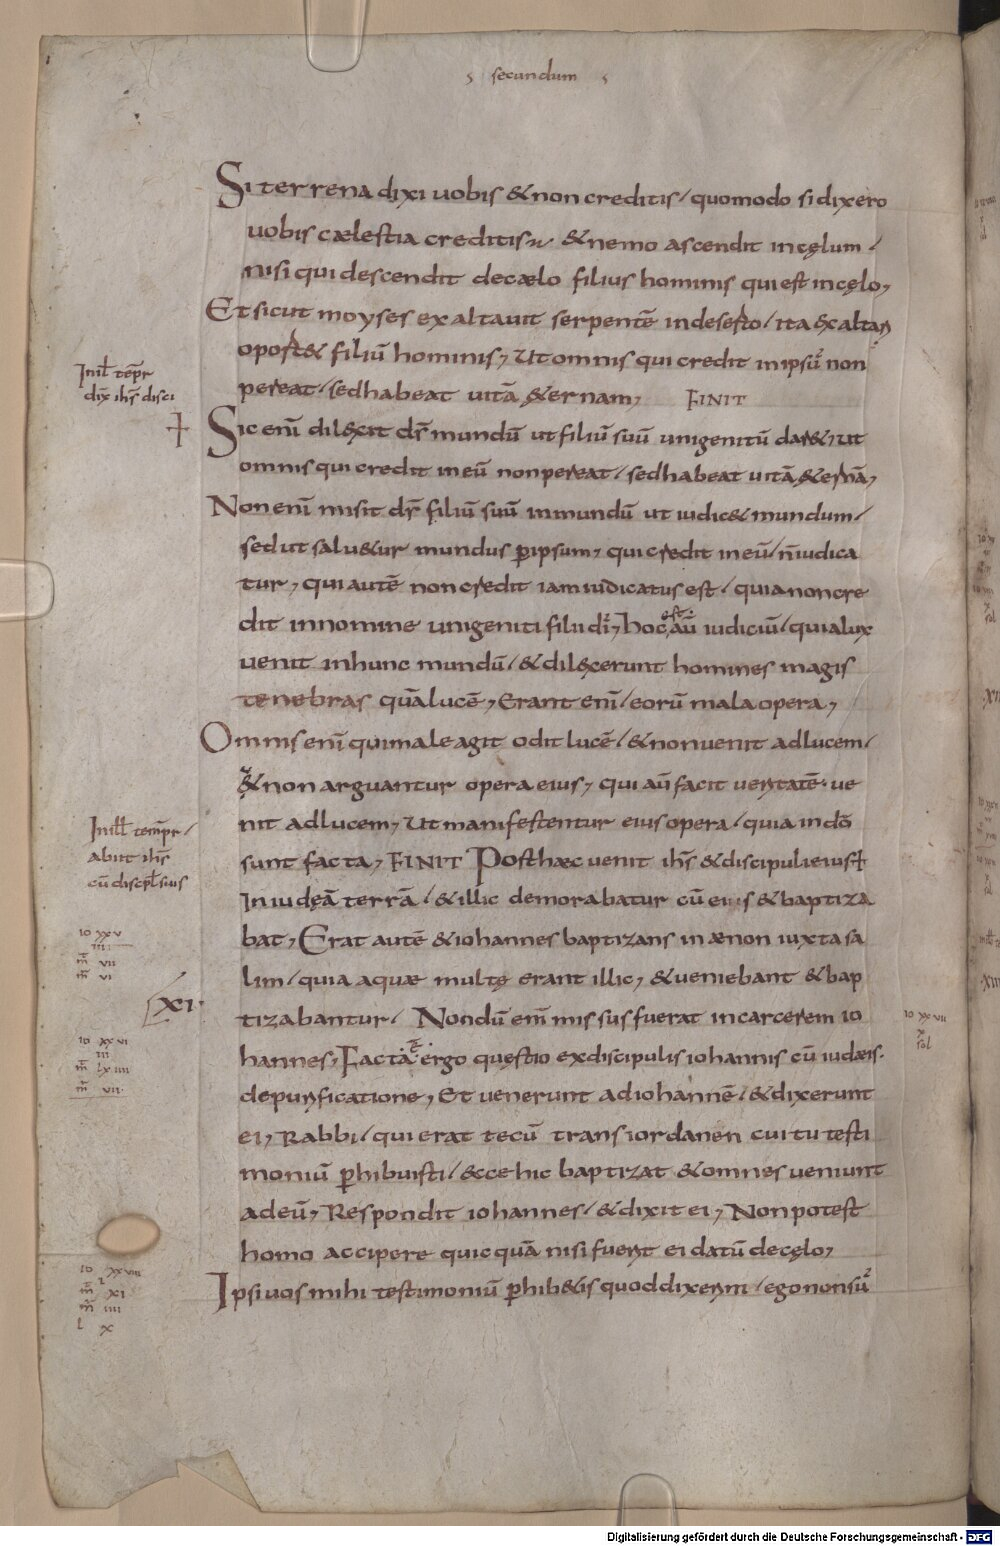 secundum
Si terrena dixi uobis & non creditis / quomodo si dixero
uobis cælestia creditis & nemo ascendit in cęlum /
nisi qui descendit de cælo filius hominis qui est in cęlo,
Et sicut moyses exaltauit serpentē in deserto / ita &xaltari
oport& filiū hominis, Ut omnis qui credit in ipsū non
pereat / sed habeat uitā &ernam, FINIT
Inill tēpr
dix ihs disci
Sic enī dil&xit ds mundū ut filiū suū unigenitū dar&, ut
omnis qui credit in eū non pereat / sed habeat uitā &ernā,
Non enī misit ds filiū suū in mundū ut iudic& mundum /
sed ut salu&ur mundus p ipsum, qui credit in eū / n̄ iudica
tur, qui autē non credit iam iudicatus est / quia non cre
dit in nomine unigeniti filii di, hoc est aū iudiciū / quia lux
uenit in hunc mundū / & dil&xerunt homines magis
tenebras quā lucē, Erant enī / eorū mala opera,
Omnis enī qui male agit odit lucē / & non uenit ad lucem /
& non arguantur opera eius, qui aū facit ueritatē · ue
nit ad lucem, Ut manifestentur eius opera / quia in dō
Inill tempr /
abiit ihs
cū discpl suis
sunt facta, FINIT Post hæc uenit ihs & discipuli eius
In iudęā terrā / & illic demorabatur cū eis & baptiza
bat, Erat autē & iohannes baptizans in ænon iuxta sa
io xxv
iii
m vii
m vi
lim / quia aquæ multę erant illic, & ueniebant & bap
XI
tizabantur / Nondū enī missus fuerat in carcerem io
io xxvii
x
sol
io xxvi
iii
m lxiiii
m vii
hannes, Facta ē ergo quęstio ex discipulis iohannis cū iudæis ·
de purificatione, Et uenerunt ad iohannē / & dixerunt
ei, Rabbi / qui erat tecū trans iordanen cui tu testi
moniū phibuisti / &cce hic baptizat & omnes ueniunt
ad eū, Respondit iohannes / & dixit ei, Non potest
homo accipere quicquā nisi fuerit ei datū de cęlo,
io xxviii
i
m xi
m iiii
l x
Ipsi uos mihi testimoniū phib&is quod dixerim / ego non sū
Digitalisierung gefördert durch die Deutsche Forschungsgemeinschaft - DFG